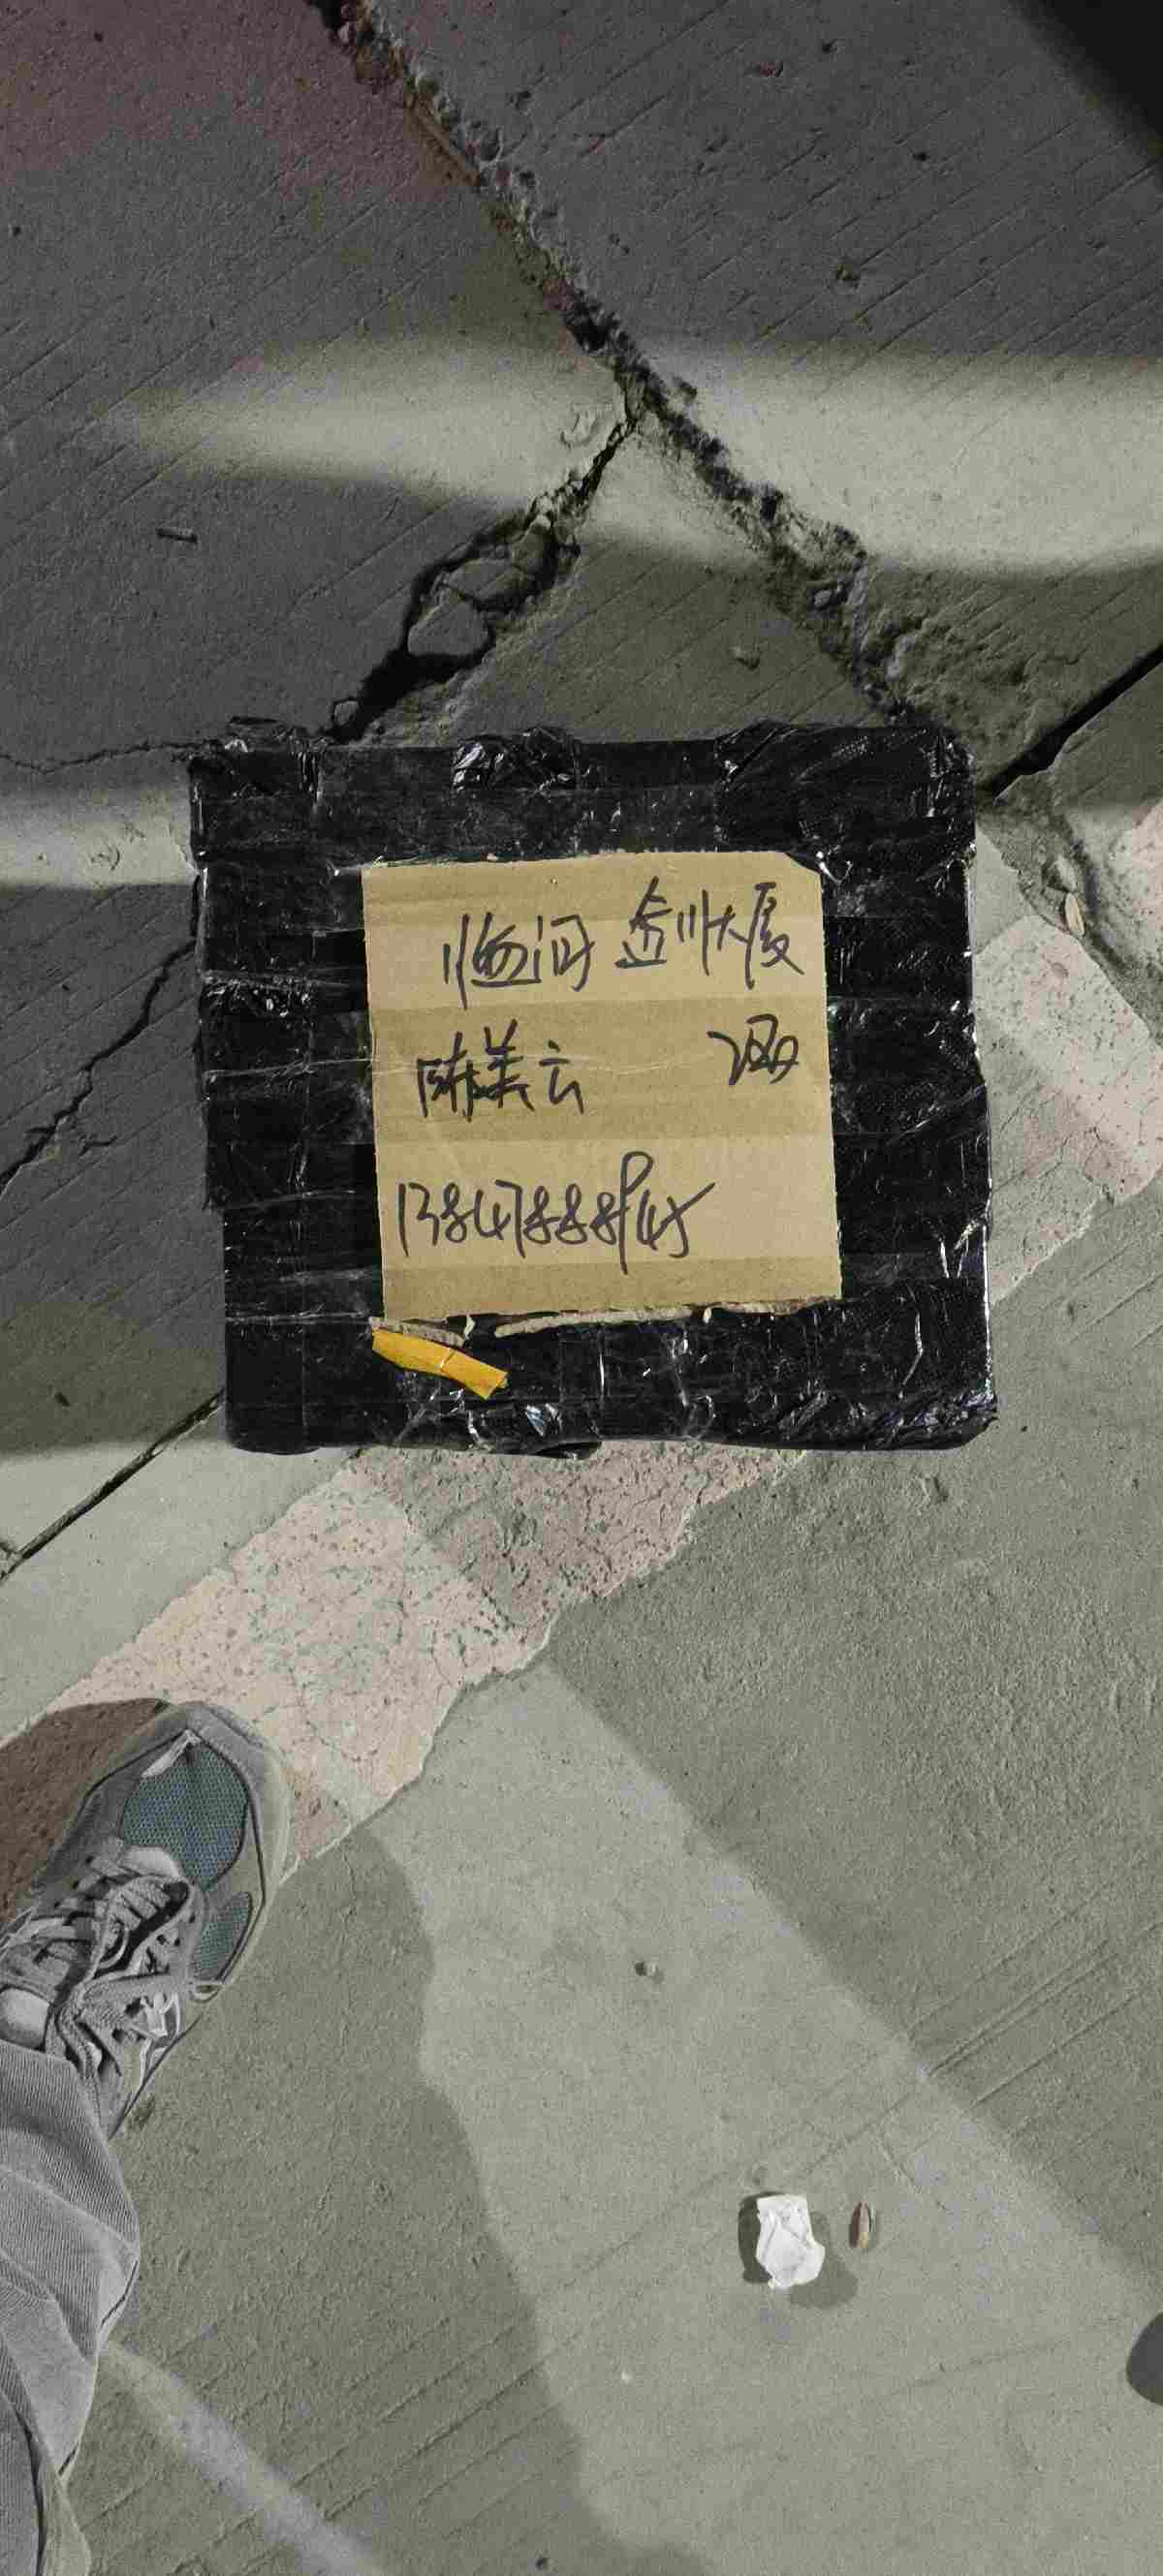 临河 金川大厦
陈美云 酒
13847888845